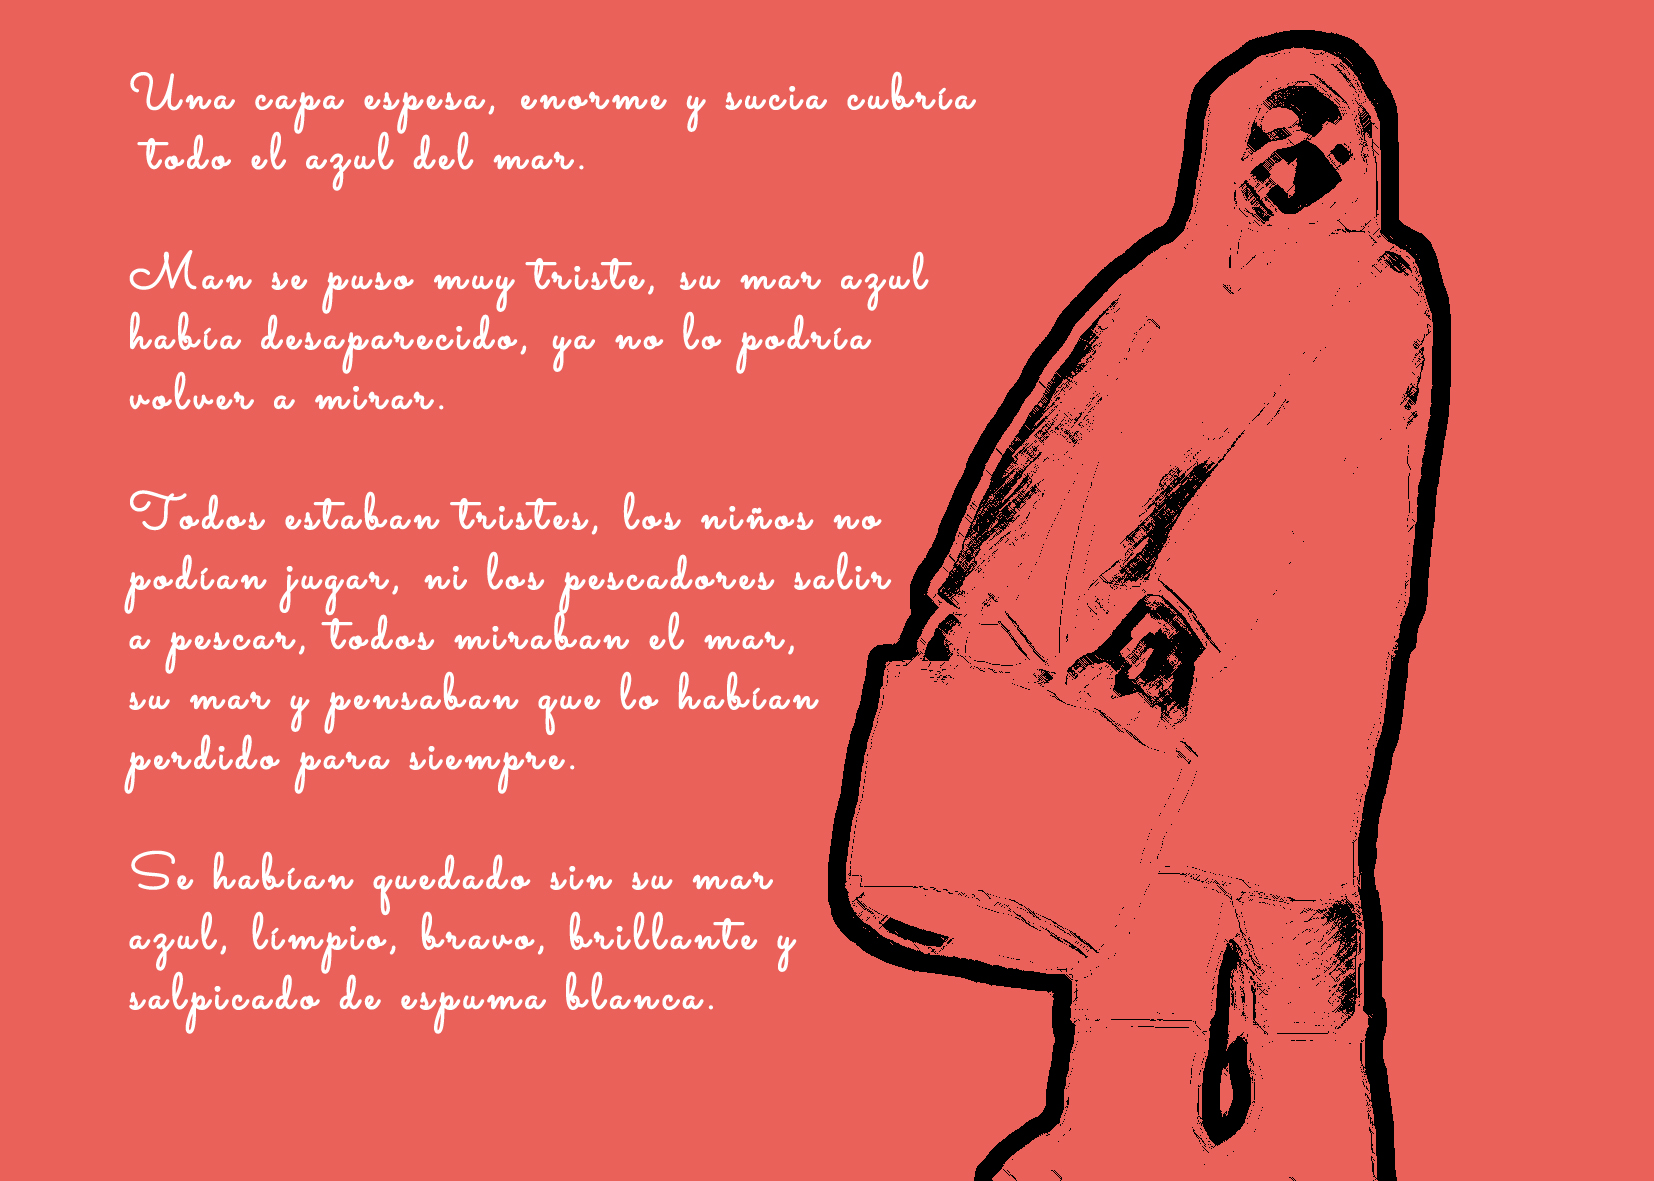 Una capa espesa, enorme y sucia cubría
todo el azul del mar.
Man se puso muy triste, su mar azul
había desaparecido, ya no lo podría
volver a mirar.
Todos estaban tristes, los niños no
podían jugar, ni los pescadores salir
a pescar, todos miraban el mar,
su mar y pensaban que lo habían
perdido para siempre.
Se habían quedado sin su mar
azul, límpio, bravo, brillante y
salpicado de espuma blanca.